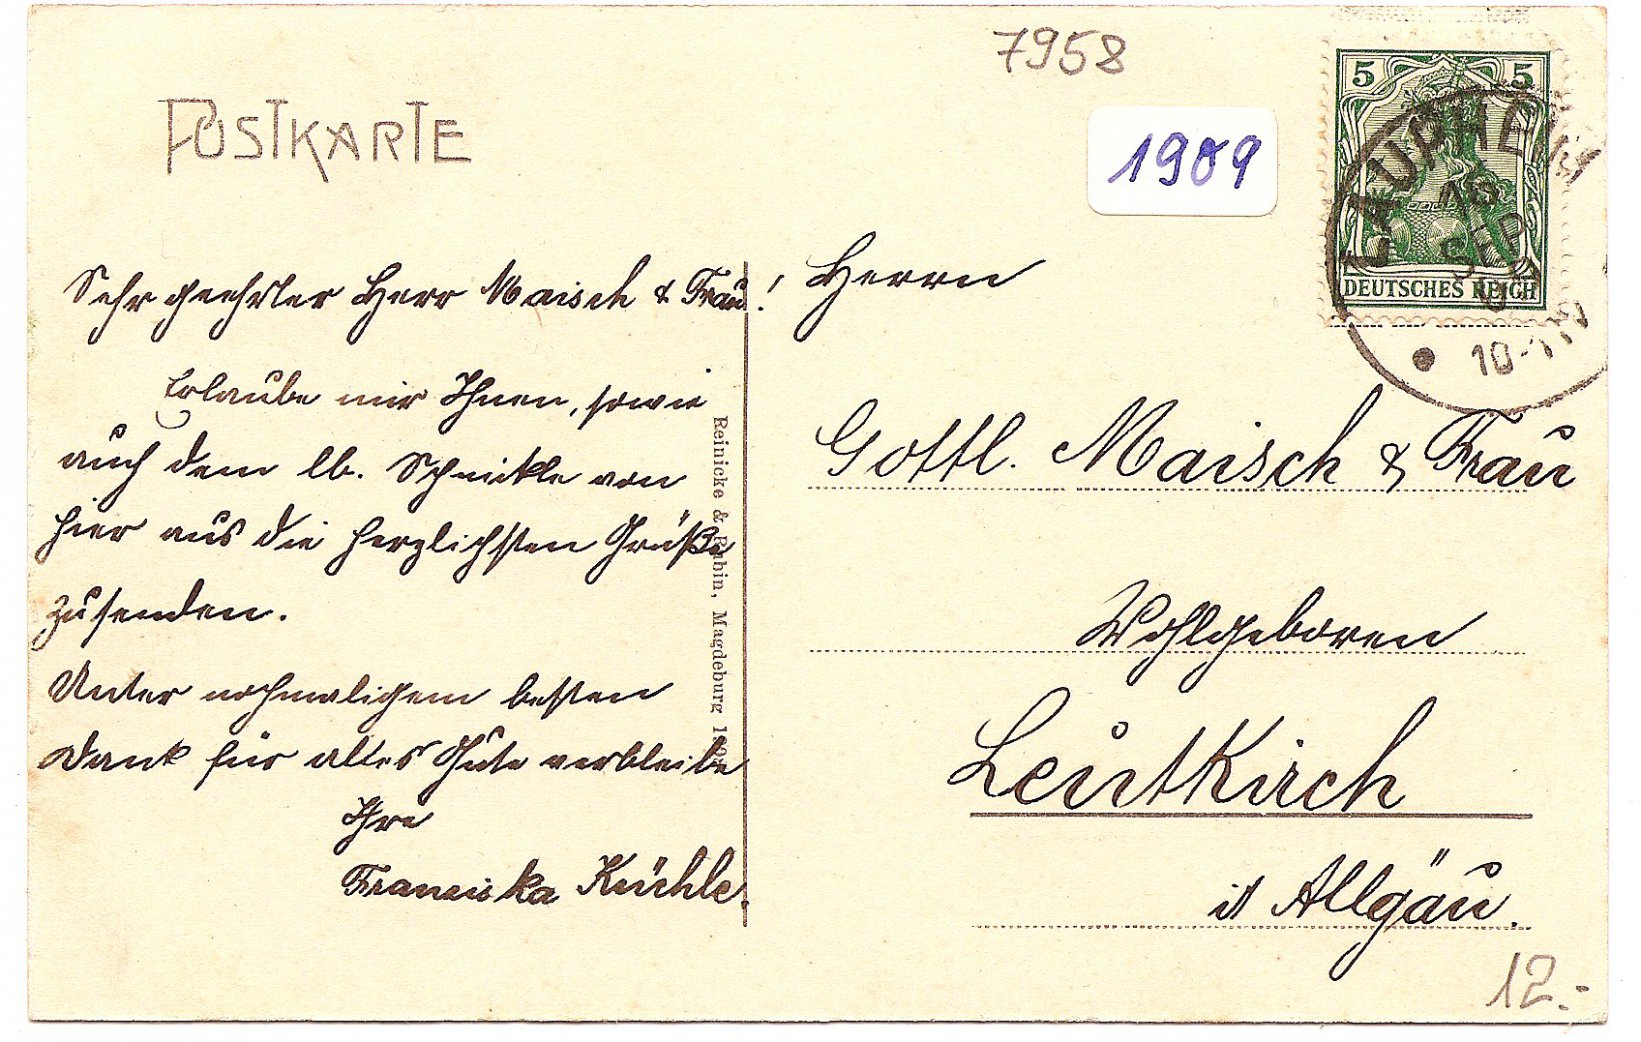 7958
POSTKARTE
1909
5 5
DEUTSCHES REICH
LAUPHEIM
16
SEP
10-11
Sehr geehrter Herr Maisch & Frau!
Erlaube mir Ihnen, sowie
auch dem lb. von
hier aus die herzlichsten Grüße
zusenden.
Unter nochmaligem besten
Dank für alles Gute verbleibe
Ihre
Franziska Küchle.
Reinicke & Rubin, Magdeburg
Herrn
Gottl. Maisch & Frau
Wohlgeboren
Leutkirch
i/ Allgäu.
12.-